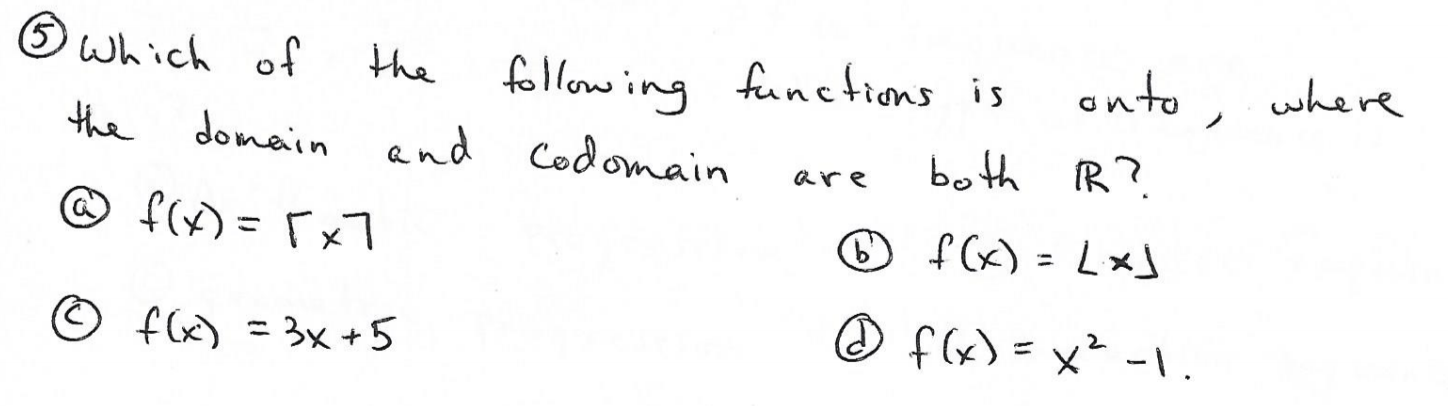 ⑤ Which of the following functions is onto, where
the domain and codomain are both ℝ?
ⓐ f(x) = ⌈x⌉
ⓑ f(x) = ⌊x⌋
ⓒ f(x) = 3x + 5
ⓓ f(x) = x² - 1.